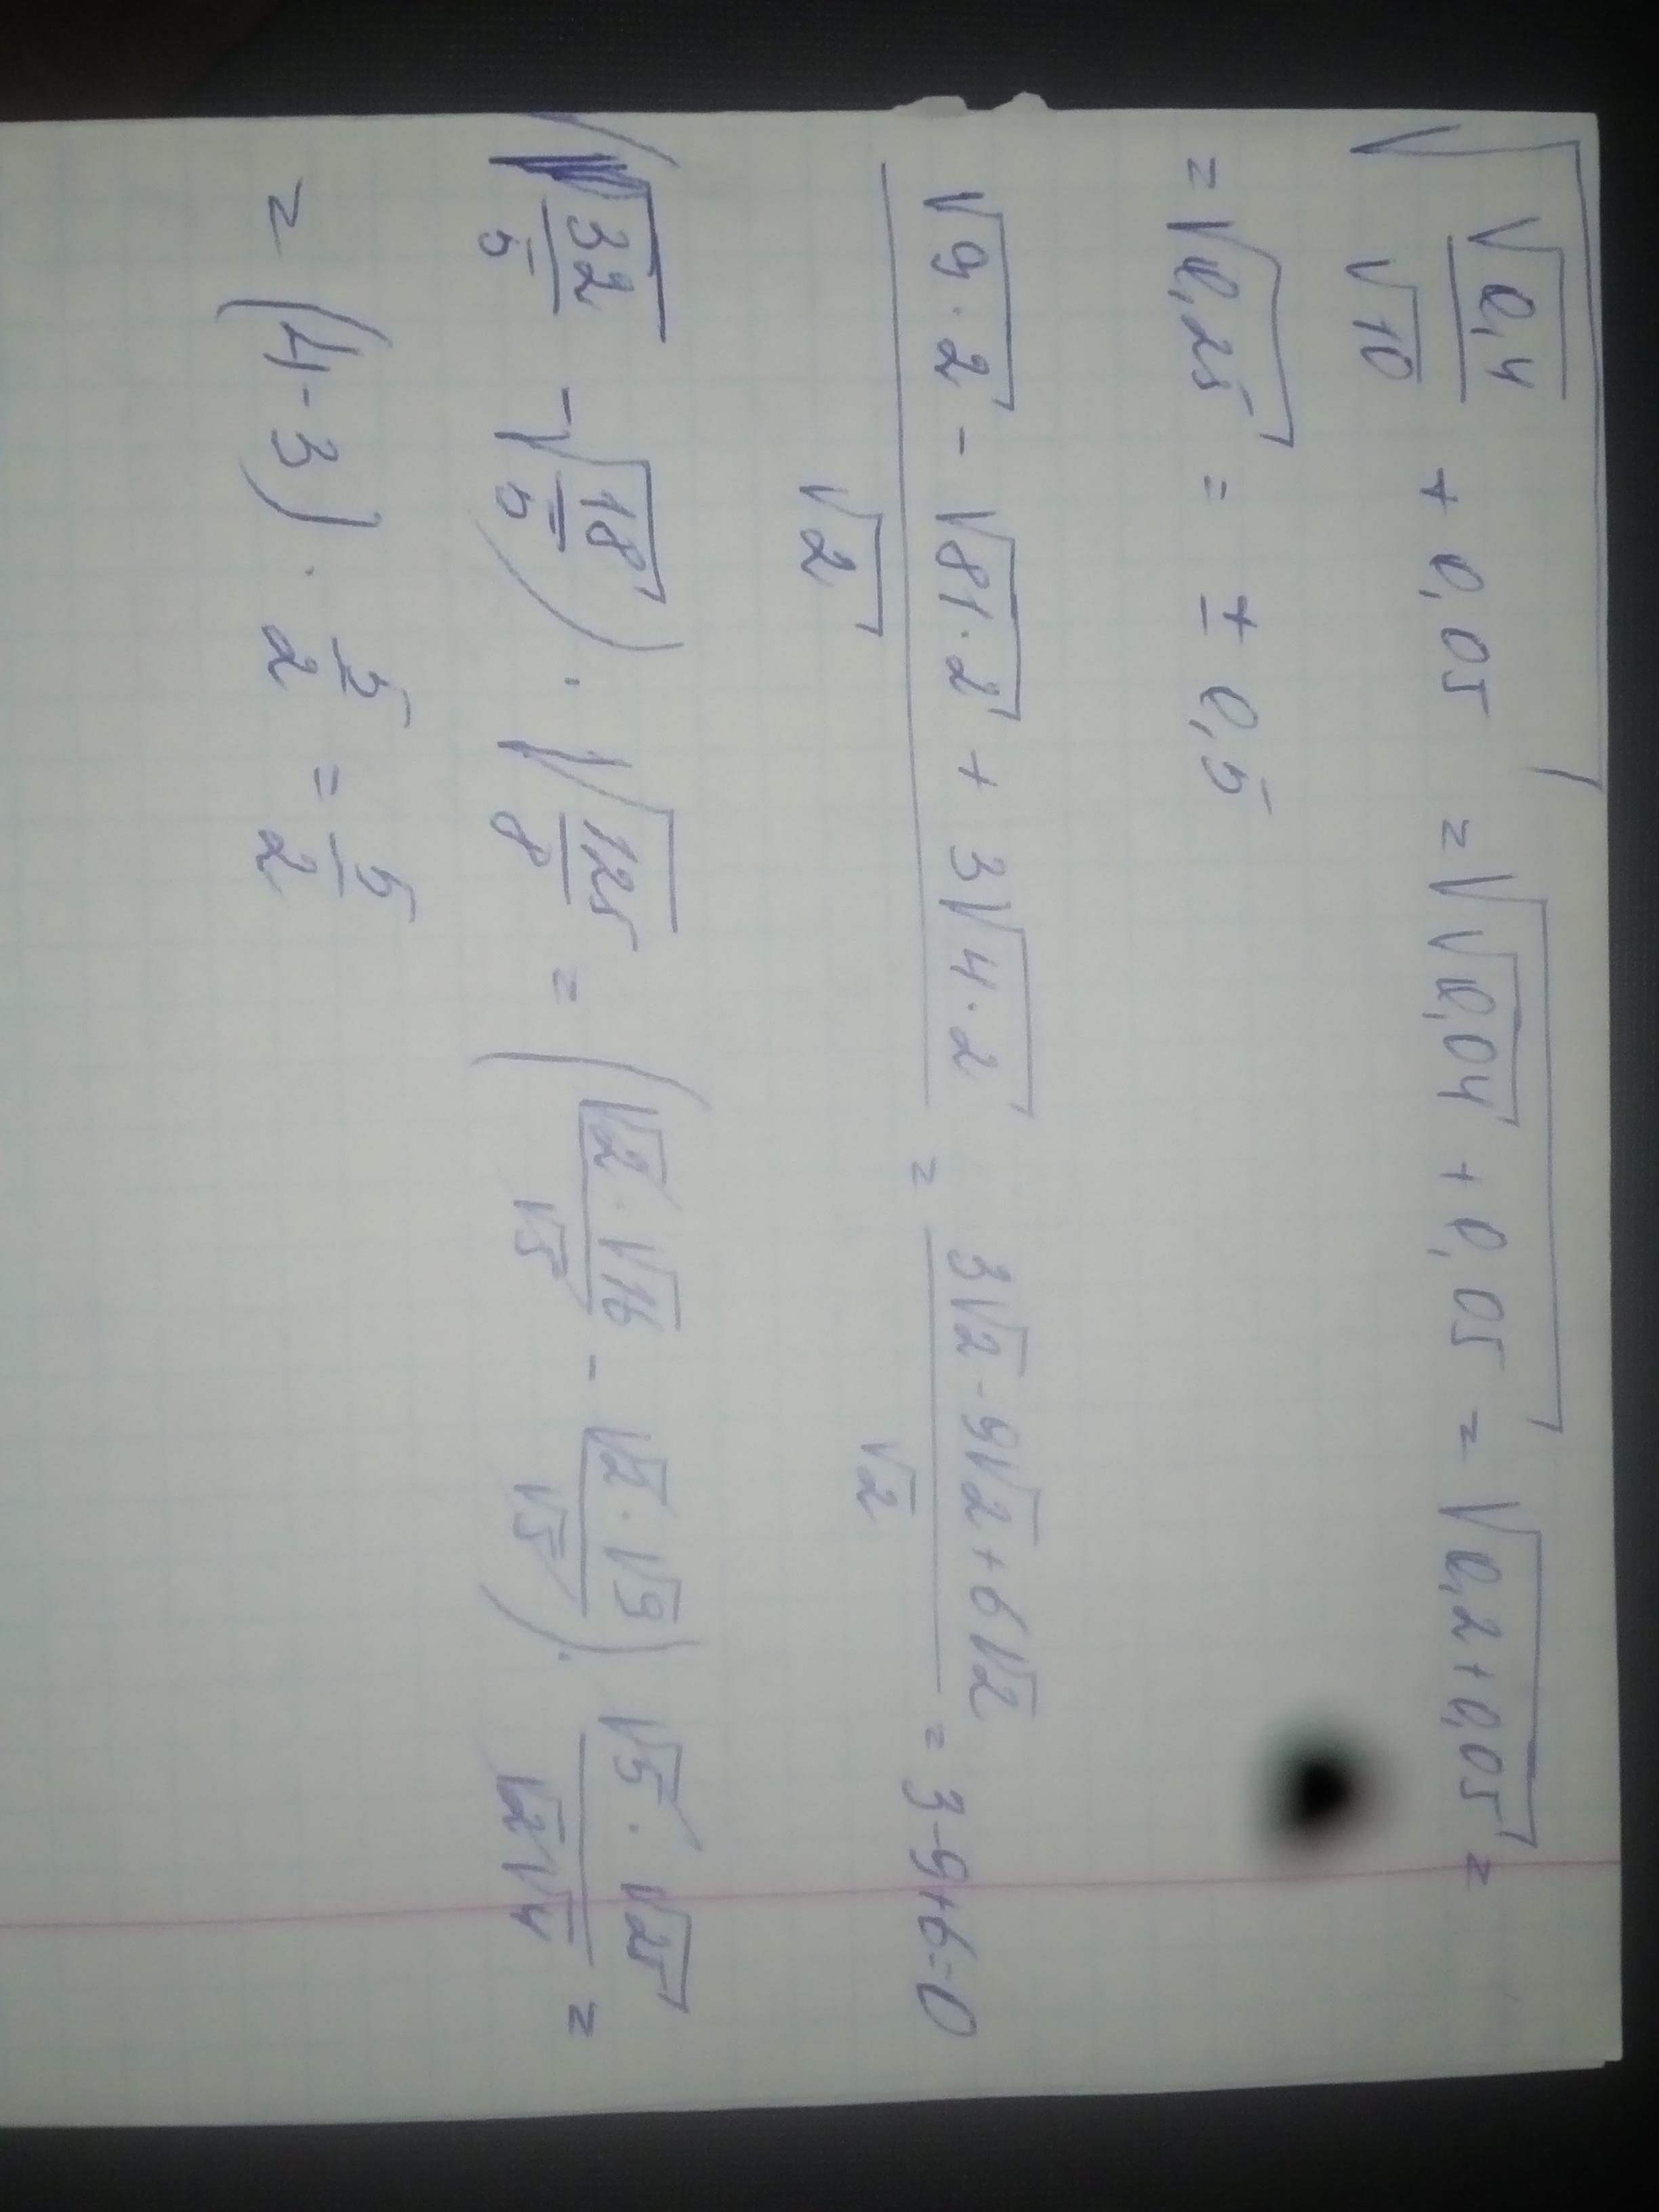 √(√0,4/√10 + 0,05) = √(√0,04 + 0,05) = √(0,2 + 0,05) =
= √0,25 = ± 0,5
(√(9·2) - √(81·2) + 3√(4·2))/√2 = (3√2 - 9√2 + 6√2)/√2 = 3-9+6=0
(√(32/5) - √(18/5)) · √(125/8) = ((√2·√16)/√5 - (√2·√9)/√5) · (√5·√25)/(√2√4) =
= (4-3) · 5/2 = 5/2